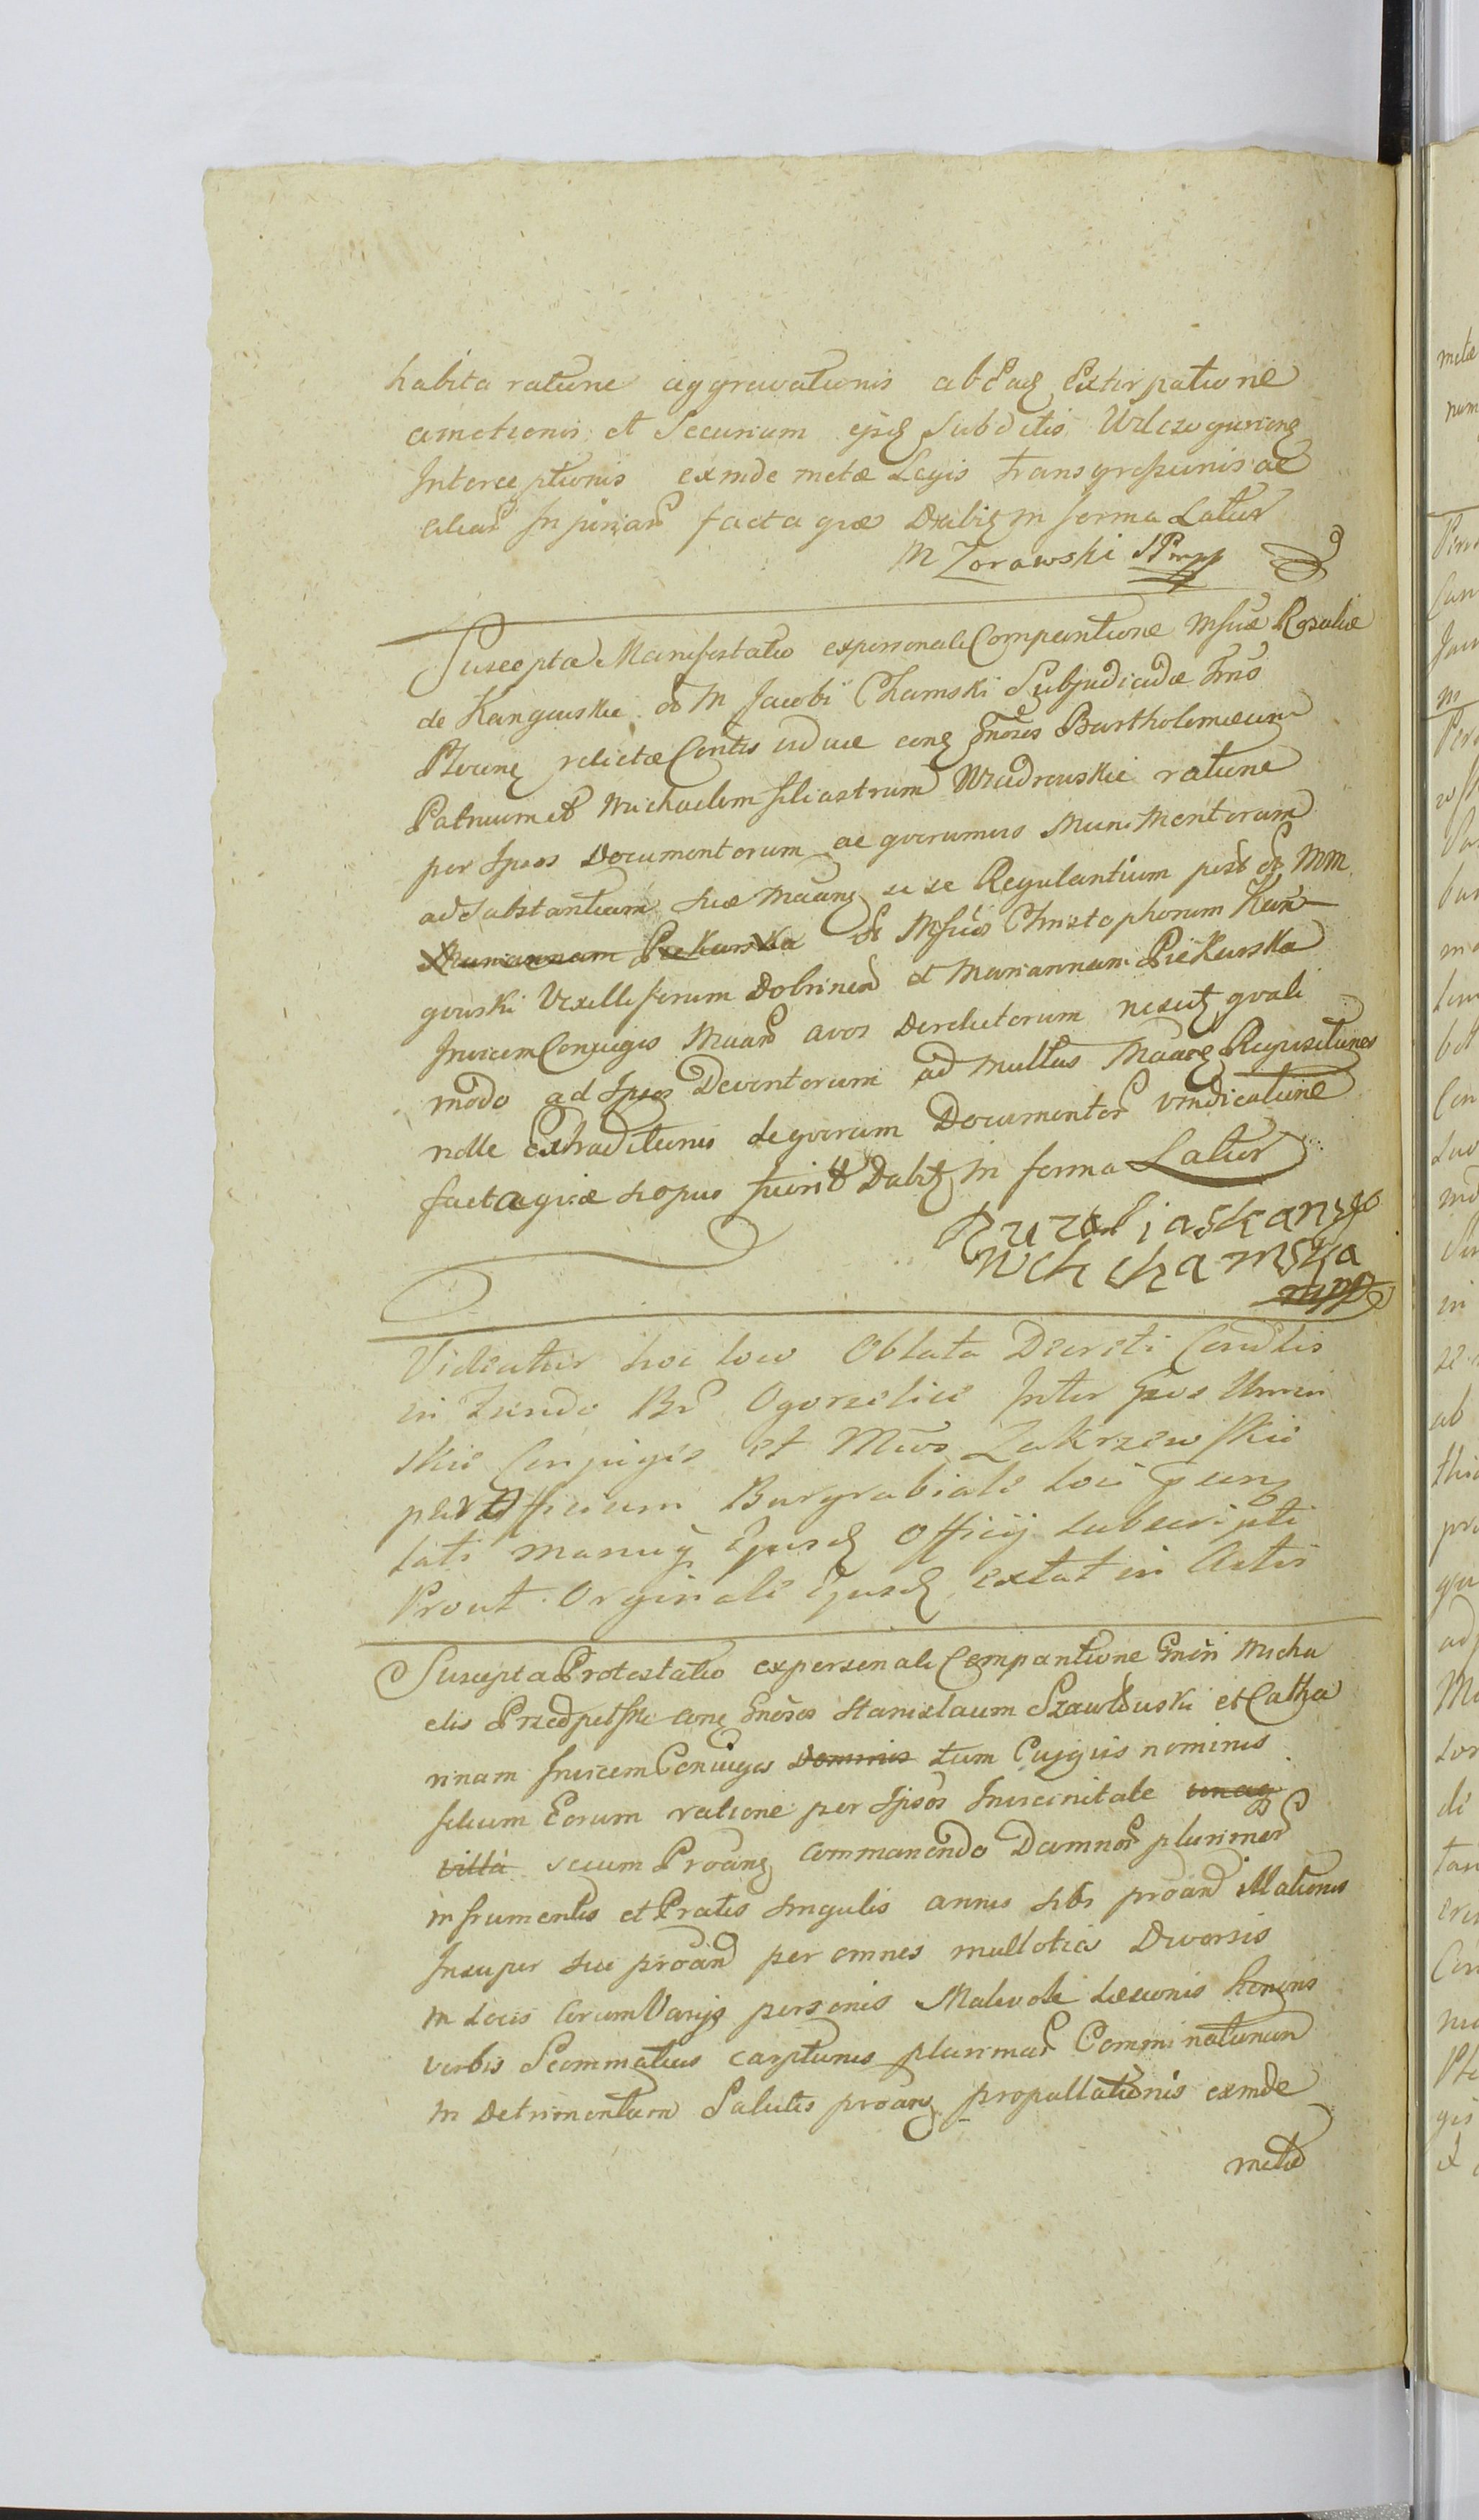 habita ratione aggravationis ab Eadē Extirpatione
ametionis et Securium ejsdē Subditis Wilczoguriensȝ
Interceptionis exinde metæ Legis transgressionis ac
aliarū Injuriarū facta quæ Dabitȝ in forma Latior
M Zorawski SPmpp
Suscepta Manifestatio ex personali Comparitione Mfcæ Rosaliæ
de Kangowskie ol M Jacobi Chamski Subjudicis Trrs
Plocensȝ relictæ Contis viduæ conȝ Gnosos Bartholomæum
Patruum et Michaelem filiastrum Wiadrowskie ratione
per Ipsos Documentorum ac quorumvis Munimentorum
ad substantiam suæ Maansȝ se se Regulantium post ol MM
Mariannam Piekarska ol Mfcos Christophorum Kan
gowski Vexilliferum Dobrinen et Mariannam Piekarska
Invicem Conjuges Maan avos Derelictorum nescitȝ quali
modo ad Ipsos Deventorum ad multas Maansȝ Requisitiones
nolle Extraditionis de quorum Documentorū vindicatione
facta quæ si opus fuerit Dabitȝ in forma Latior
Ruzaliaskansgo
wch chamska
mpp
Videatur hoc loco Oblata Decreti Condtis
in fundo Br Ogorzelice Inter Gsos Umin
skie Conjuges et Mcos Zakrzewskie
per Officium Burgrabiale loci
lati manuqȝ Ejusdē Officij subscripti
Prout Orginale Ejusdē extat in Actis
Suscepta Protestatio ex personali Comparitione Gnsi Micha
elis Przedpełski conȝ Gnosos Stanislaum Szawłowski et Catha
rinam Invicem Conjuges Dominos tum Cujqvis nominis
filium Eorum ratione per Ipsos Invicinitate unaqȝ
villa secum Proansȝ commanendo Damnorū plurimorū
in frumentis et Pratis singulis annis sibi proan illationis
Insuper sui proan per omnes multoties Diversis
in Locis coram Varijs personis Malevole Læsionis honoris
verbis Scommaticis carptionis plurimarū Comminationum
in Detrimentum Salutis proansȝ propallationis exinde
metæ